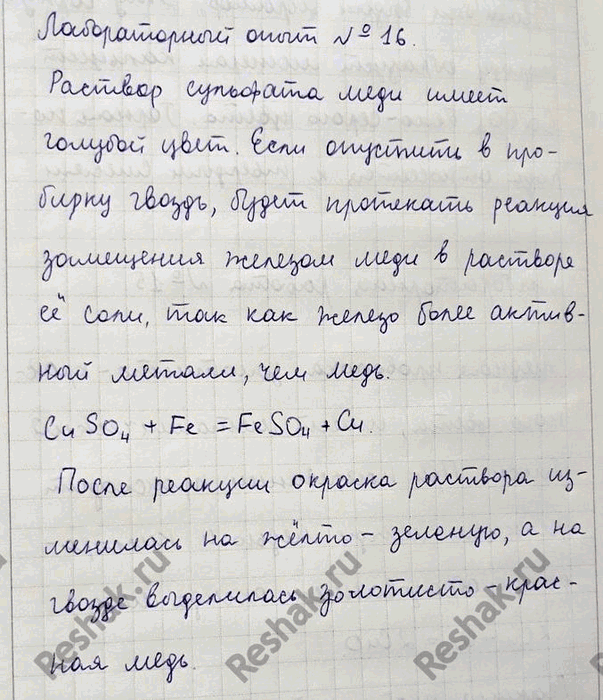 Лабораторный опыт № 16.
Раствор сульфата меди имеет
голубой цвет. Если опустить в про-
бирку гвоздь, будет протекать реакция
замещения железом меди в растворе
её соли, так как железо более актив-
ный металл, чем медь.
CuSO₄ + Fe = FeSO₄ + Cu.
После реакции окраска раствора из-
менилась на жёлто-зеленую, а на
гвозде выделилась золотисто-крас-
ная медь.
Reshak.ru
Reshak.ru
Reshak.ru